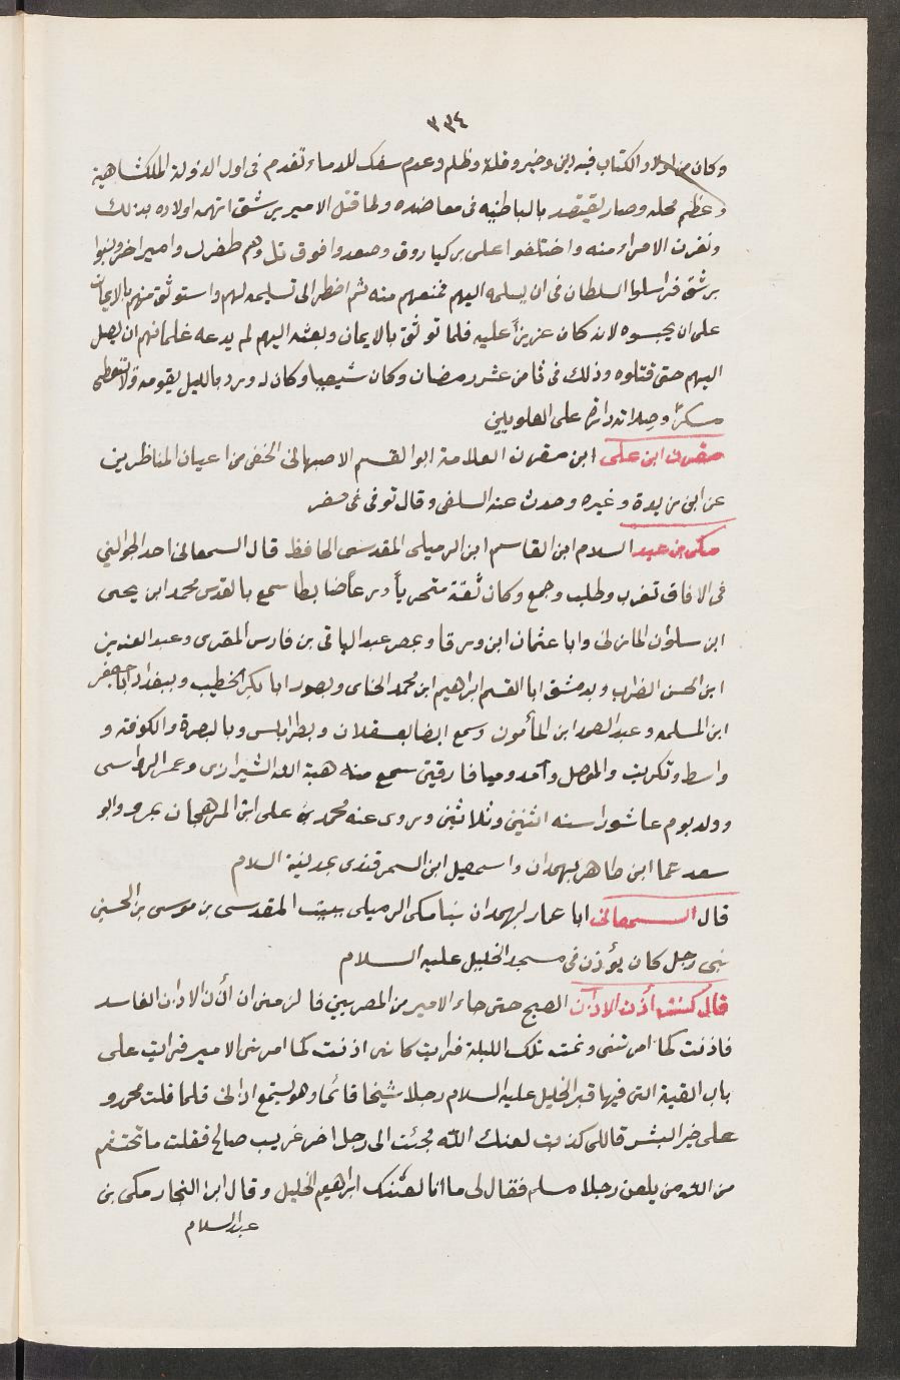 ٣٣٤
وكان من اولاد الكتاب فيه دين وخير وقلة وظلم وعدم سفك للدماء تقدم فى اول الدولة الملكشاهية
وعظم محله وصار يعتضد بالباطنيه فى معاضده ولما قتل الامير برشق اتهمه اولاده بذلك
ونفرت الامراء منه واختلفوا على بركياروق وصعدوا فوق تل وهم طغرل وامير اخر وبنوا
برشق فراسلوا السلطان فى ان يسلمه اليهم فمنعهم منه ثم اضطر الى تسليمه لهم واستوثق منهم بالايمان
على ان يحبسوه لانه كان عزيزاً عليه فلما توثق بالايمان وبعثه اليهم لم يدعه غلمانهم ان يصل
اليهم حتى قتلوه وذلك فى ثامن عشر رمضان وكان شيعيا وكان له ورد بالليل يقومه ولا يتعطى
مسكراً وصلاته دارة على العلويين
مقرن ابن على ابن مقرن العلامة ابو القسم الاصبهانى الحنفى من اعيان المناظرين
عن ابن ريدة وغيره وحدث عنه السلفى وقال توفى فى صفر
مكى بن عبد السلام ابن القاسم ابن الرميلى المقدسى الحافظ قال السمعانى احد الجوالين
فى الافاق تغرب وطلب وجمع وكان ثقة متحرياً ورعاً ضابطا سمع بالقدس محمد ابن يحيى
ابن سلوان المازنى وابا عثمان ابن ورقا وبمصر عبد الباقى بن فارس المقرى وعبد العزيز
ابن الحسن الضراب وبدمشق ابا القسم ابراهيم ابن محمد الحناى وبصور ابا بكر الخطيب وببغداد ابا جعفر
ابن المسلمه وعبد الصمد ابن المأمون وسمع ايضا بعسقلان وبطرابلس وبالبصرة والكوفة و
واسط وتكريت والموصل وآمد وميافارقين سمع منه هبة الله الشيرازى وعمر الرواسى
وولد يوم عاشورا سنه اثنين وثلاثين وروى عنه محمد بن على ابن المهرجان بمرو وابو
سعد عما ابن طاهر بهمدان واسمعيل ابن السمرقندى بمدينة السلام
قال السمعانى ابا عمار بهمدان ثنا مكى الرميلى ببيت المقدس موسى بن الحسين
ثنى رجل كان يؤذن فى مسجد الخليل عليه السلام
قال كنت أذن الاذان الصبح حتى جاء الامير من المصريين فالزمنى ان أذن الاذان الفاسد
فاذنت كما امرتنى ونمت تلك الليلة فرايت كانى اذنت كما امرنى الامير فرايت على
باب القبة التى فيها قبر الخليل عليه السلام رجلا شيخا قائما وهو يستمع اذانى فلما قلت محمد و
على خير البشر قال لى كذبت لعنك الله فجئت الى رجل اخر غريب صالح فقلت ما تحتشم
من الله من يلعن رجلا مسلم فقال لى ما انا لعنتك ابراهيم الخليل وقال ابن النجار مكى بن
عبد السلام